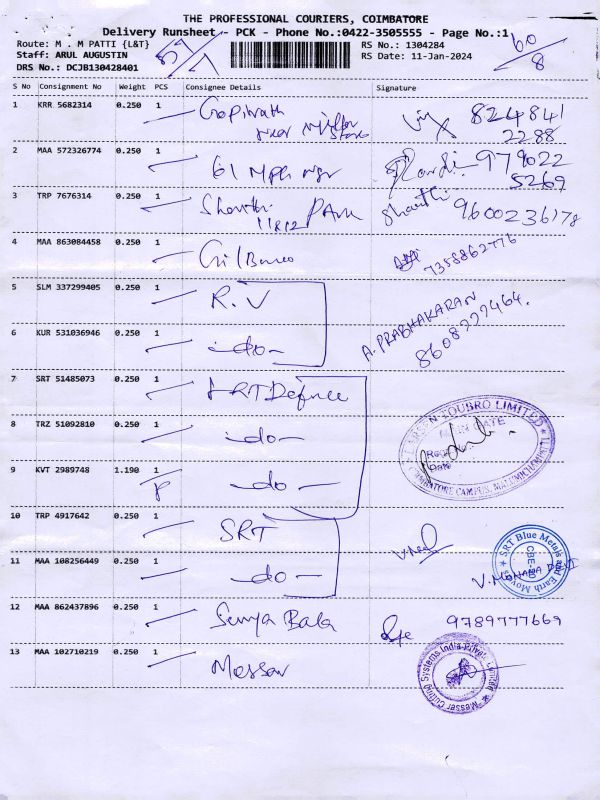 THE PROFESSIONAL COURIERS, COIMBATORE
Delivery Runsheet - PCK - Phone No.:0422-3505555 - Page No.:1
Route: M . M PATTI {L&T}
Staff: ARUL AUGUSTIN
DRS No.: DCJB130428401
RS No.: 1304284
RS Date: 11-Jan-2024
60/8
S No Consignment No Weight PCS Consignee Details Signature
1 KRR 5682314 0.250 1
824841
2288
2 MAA 572326774 0.250 1 61
979022
5269
3 TRP 7676314 0.250 1 Shanthi Shanthi 9600236178
4 MAA 863084458 0.250 1
7358862776
5 SLM 337299405 0.250 1 R.V
A. PRABHAKARAN
8608227464.
6 KUR 531036946 0.250 1 -do-
7 SRT 51485073 0.250 1 LRT Defence
8 TRZ 51092810 0.250 1 -do-
LARSEN & TOUBRO LIMITED
MAIN GATE
COIMBATORE CAMPUS, MALUMICHAMPATTI
9 KVT 2989748 1.190 1 -do-
10 TRP 4917642 0.250 1 SRT
11 MAA 108256449 0.250 1 -do-
SRT Blue Metals and Earth Movers
CBE
12 MAA 862437896 0.250 1 Surya Bala 9789777669
13 MAA 102710219 0.250 1 Messer
Messer Cutting Systems India Private Limited